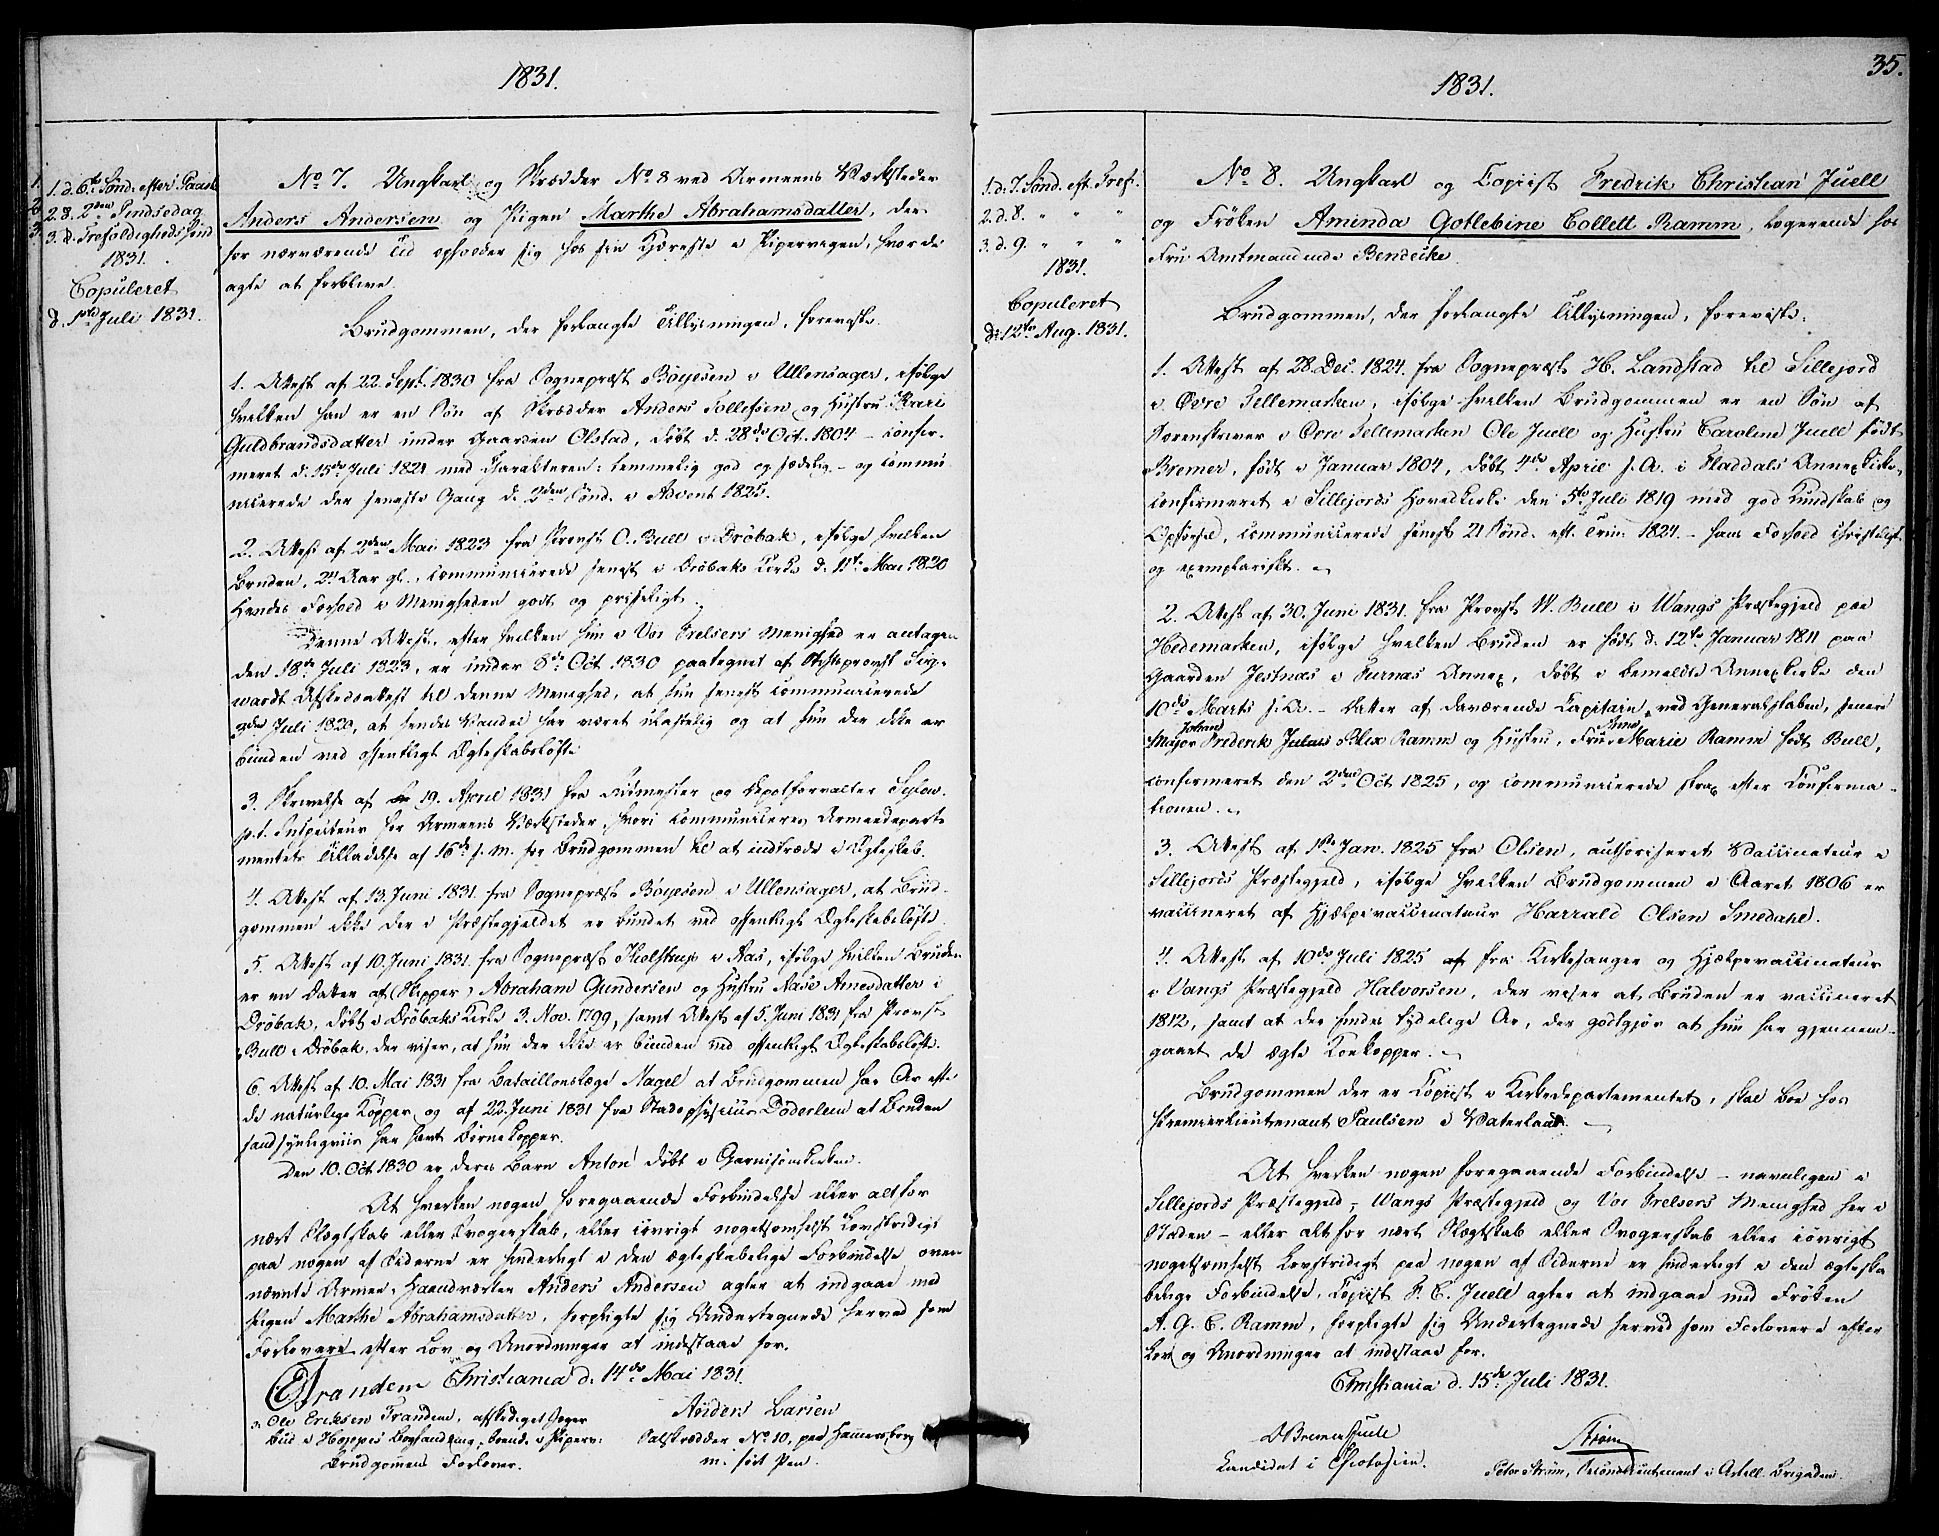 1831.
1. d. 6te Sønd. efter Paaske
2. d. 2den Pindsedag
3. d. Trefoldigheds Sønd.
1831.
Copuleret
d. 1ste Juli 1831.
No 7. Ungkarl og Skrædder No 8 ved Armeens Værksteder
Anders Andersen og Pigen Marthe Abrahamsdatter, der
for nærværende Tid opholder sig hos sin Kjæreste i Pipervigen, hvor de
agte at forblive.
Brudgommen, der forlangte Tillysningen, foreviste:
1. Attest af 22. Sept. 1830 fra Sognepræst Böyesen i Ullensager, ifølge
hvilken han er en Søn af Skrædder Anders Tollefsen og Hustru Kari
Guldbrandsdatter under Gaarden Olstad, döbt d. 28de Oct. 1804 – confir-
meret d. 15de Juli 1821 med Charakteren: temmelig god og sædelig – og commu
nicerede der seneste Gang d. 2den Sönd. i Advent 1825.
2. Attest af 2den Mai 1823 fra Provst O. Bull i Dröbak, ifølge hvilken
Bruden, 24 Aar gl., communicerede senest i Dröbaks Kirke d. 11te Mai 1820
Hendes Forhold i Menigheden godt og priseligt.
Denne Attest, efter hvilken hun i Vor Frelsers Menighed er antagen
den 18de Juli 1823, er under 8de Oct. 1830 paategnet af Stiftsprovst
Afskedsattest til denne Menighed, at hun senest communicerede
Juli 1820, at hendes Vandel har været ulastelig og at hun der ikke er
bunden ved offentligt Ægteskabsløfte
3. Skrivelse af 19. April 1831 fra Ritmester og Depotforvalter
p.t. Inspecteur for Armeens Værksteder, hvori communiceres Armeedeparte
mentets Tilladelse af 16de s. M. for Brudgommen til at indtræde i Ægteskab.
4. Attest af 13. Juni 1831 fra Sognepræst Böyesen i Ullensager, at Brud-
gommen ikke der i Præstegjeldet er bundet ved offentligt Ægteskabsløfte.
5. Attest af 10. Juni 1831 fra Sognepræst Holstrup i Aas, ifølge hvilken Bruden
er en Datter af (Skipper) Abraham Gundersen og Hustru Aase Arnesdatter i
Dröbak, döbt i Dröbaks Kirke 3. Nov. 1799, samt Attest af 5. Juni 1831 fra Provst
Bull i Dröbak, der viser, at hun der ikke er bunden ved offentligt Ægteskabsløfte.
6. Attest af 10. Mai 1831 fra Bataillonslæge Nagel at Brudgommen har Ar efter
de naturlige Kopper, og af 22. Juni 1831 fra Stadsphysicus Döderlein at Bruden
sandsynligviis har havt Börnekopper.
Den 10. Oct. 1830 er deres Barn Anton döbt i Garnisonskirken.
At hverken nogen foregaaende Forbindelse eller altfor
nært Slægtskab eller Svogerskab, eller iövrigt nogetsomhelst Lovstridigt
paa nogen af Siderne er hinderligt i den ægteskabelige Forbindelse oven
nævnte Armee-Haandværker Anders Andersen agter at indgaae med
Pigen Marthe Abrahamsdatter, forpligte sig Undertegnede herved som
Forlovere efter Lov og Anordninger at indestaae for.
Christiania d. 14de Mai 1831.
Tranders
Ole Eriksen Tranden, afskediget Jæger
Bud i Hoppes Boghandling, boende i Piperv:
Brudgommens Forlover.
Anders Larsen
Salskrædder No 10, paa Hammersborg
m. ført Pen.
35.
1831.
1. d. 7. Sönd. eft. Tref.
2. d. 8. " " "
3. d. 9. " " "
1831.
Copuleret
d. 12te Aug. 1831.
No 8. Ungkarl og Copiist Fredrik Christian Juell
og Fröken Aminda Gotlebine Collett Ramm, logerende hos
Fru Amtmandinde Bendeke.
Brudgommen, der forlangte Tillysningen, foreviste:
1. Attest af 28. Dec. 1824 fra Sognepræst H. Landstad til Sillejord
i Övre Tellemarken, ifølge hvilken Brudgommen er en Søn af
Sorenskriver i Övre Tellemarken Ole Juell og Hustru Caroline Juell födt
Bremer, födt i Januar 1804, döbt 4de April s. A. i Fladdals Annexkirke,
confirmeret i Sillejords Hovedkirke den 5te Juli 1819 med god Kundskab og
Opförsel, communicerede senest 21 Sönd. eft. Trin. 1824. – hans Forhold christeligt
og exemplariskt.
2. Attest af 30. Juni 1831 fra Provst W. Bull i Wangs Præstegjeld paa
Hedemarken, ifølge hvilken Bruden er födt d. 12te Januar 1811 paa
Gaarden Jestnæs i Furnæs Annex, döbt i bemeldte Annexkirke den
10de Marts s. A. – Datter af daværende Capitain ved Generalstaben, senere
Major Johan Frederik Julius Blix Ramm og Hustru, Fru Anne Marie Ramm födt Bull,
confirmeret den 2den Oct 1825, og communicerede strax efter Confirma-
tionen.
3. Attest af 1ste Jan. 1825 fra Olsen, authoriseret Vaccinateur i
Sillejords Præstegjeld, ifølge hvilken Brudgommen i Aaret 1806 er
vaccineret af Hjælpevaccinateur Harrald Olsen Smedahl.
4. Attest af 10de Juli 1825 af fra Kirkesanger og Hjælpevaccinateur
i Vangs Præstegjeld Halvorsen, der viser at Bruden er vaccineret
1812, samt at der findes tydelige Ar, der godtgjør at hun har gjennem-
gaaet de ægte Koekopper.
Brudgommen der er Copiist i Kirkedepartementet, skal boe hos
Premierlieutenant Paulsen i Vaterland.
At hverken nogen foregaaende Forbindelse – navnligen i
Sillejords Præstegjeld, Wangs Præstegjeld og Vor Frelsers Menighed her i
Staden – eller altfor nært Slægtskab eller Svogerskab eller iövrigt
nogetsomhelst Lovstridigt paa nogen af Siderne er hinderligt i den ægteska
belige Forbindelse, Copiist F. C. Juell agter at indgaae med Fröken
A. G. C. Ramm, forpligte sig Undertegnede herved som Forlovere efter
Lov og Anordninger at indestaae for.
Christiania d. 15de Juli 1831.
O Bremer Juell
Candidat i Theologien.
Ström
Peter Ström, Secondlieutenant i Artill. Brigaden.